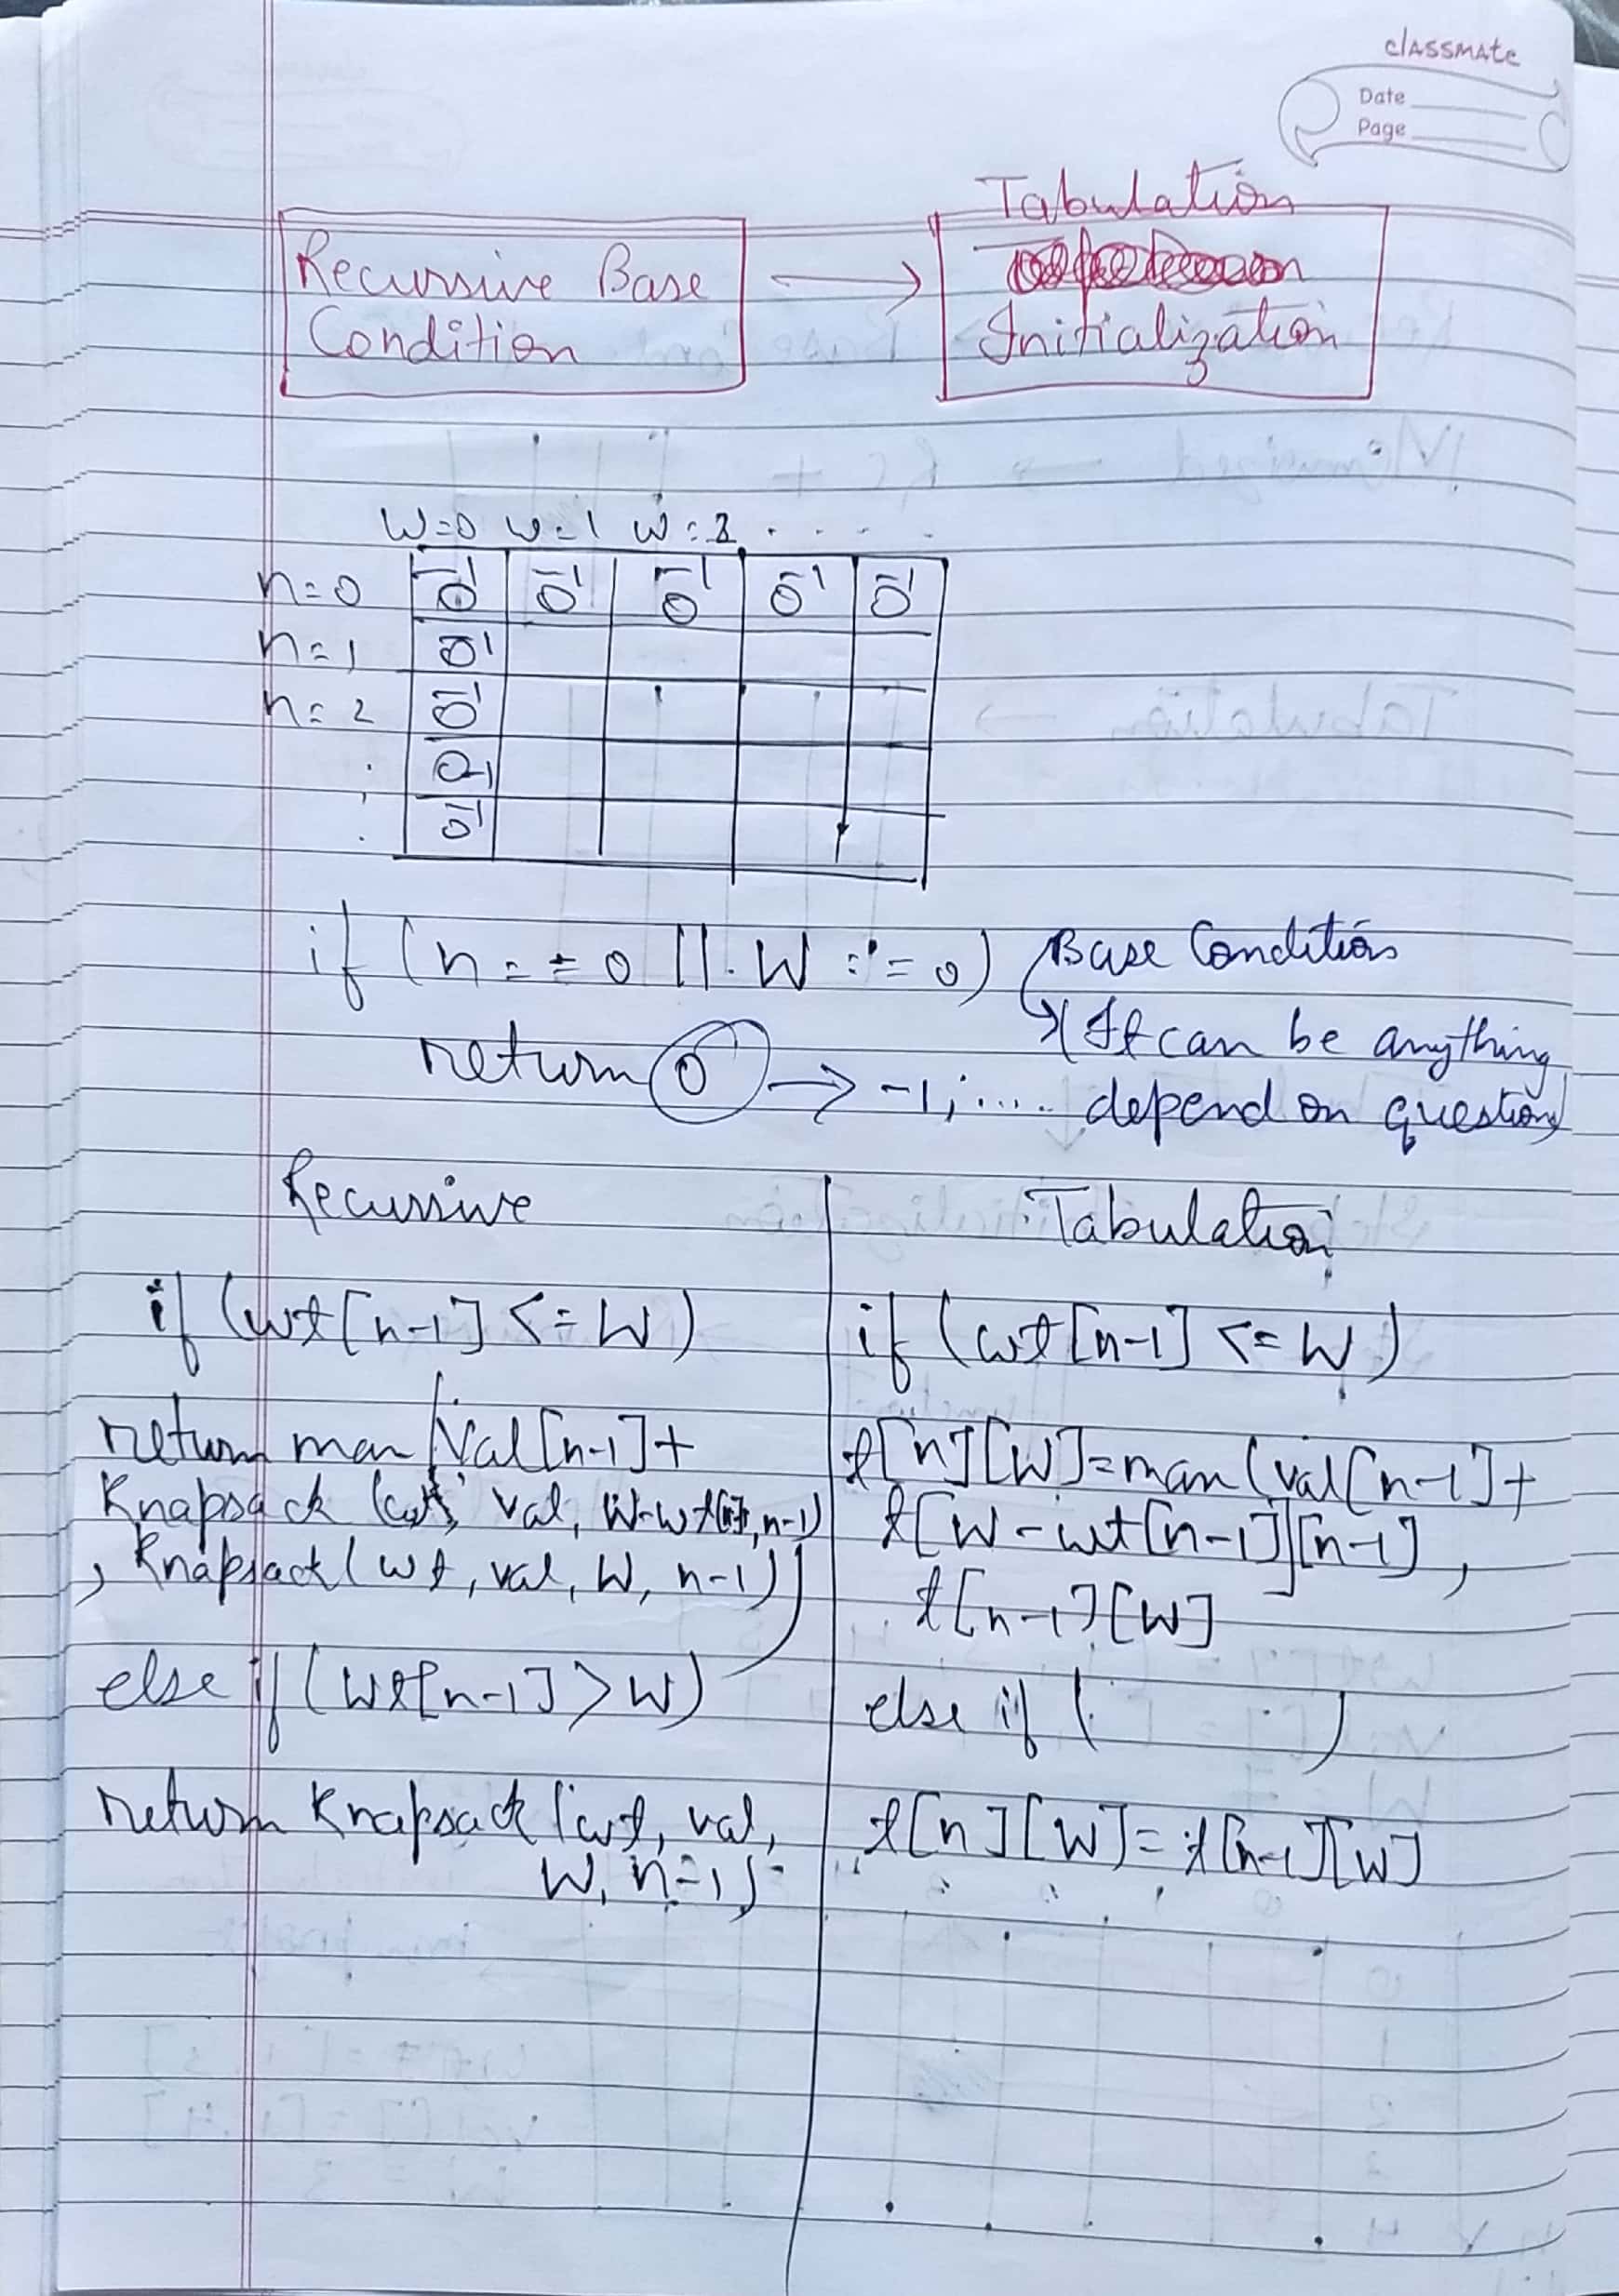 classmate
Date
Page
Recursive Base Condition → Tabulation Initialization
W=0 w=1 w=2 . . . .
n=0 0 0 0 0 0
n=1 0
n=2 0
. 0
. 0
if (n==0 || W==0) Base Condition
(It can be anything
return 0 → -1, .... depend on question)
Recursive
if (wt[n-1] <= W)
return max (val[n-1] +
Knapsack (wt, val, W-wt[n-1], n-1)
, Knapsack (wt, val, W, n-1))
else if (wt[n-1] > W)
return Knapsack (wt, val,
W, n-1)
Tabulation
if (wt[n-1] <= W)
t[n][W] = max (val[n-1] +
t[W-wt[n-1]][n-1],
t[n-1][W]
else if ( )
t[n][W] = t[n-1][W]